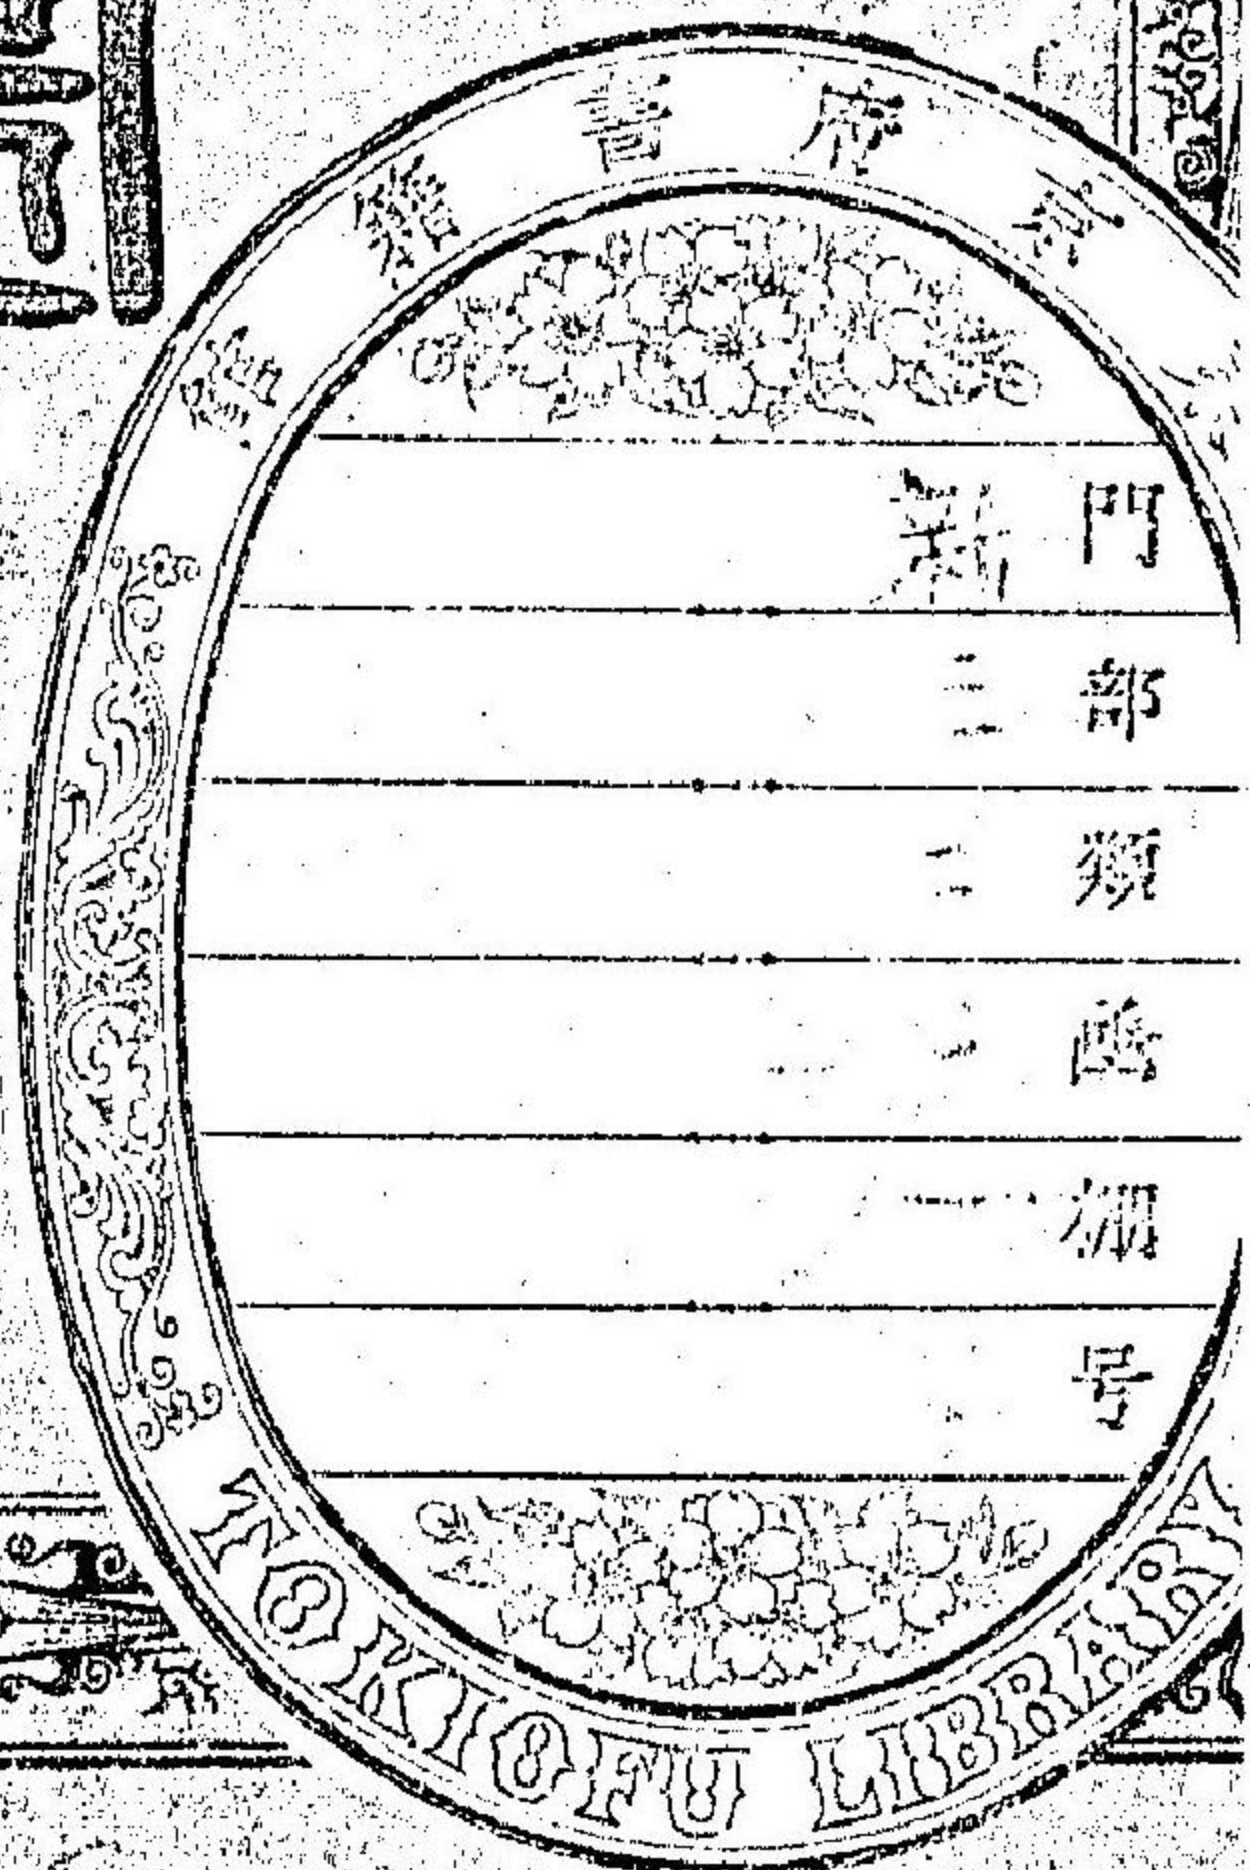 京府書籍館
門 新
部 三
類 二
凾
棚 一
号
TOKIOFU LIBRARY